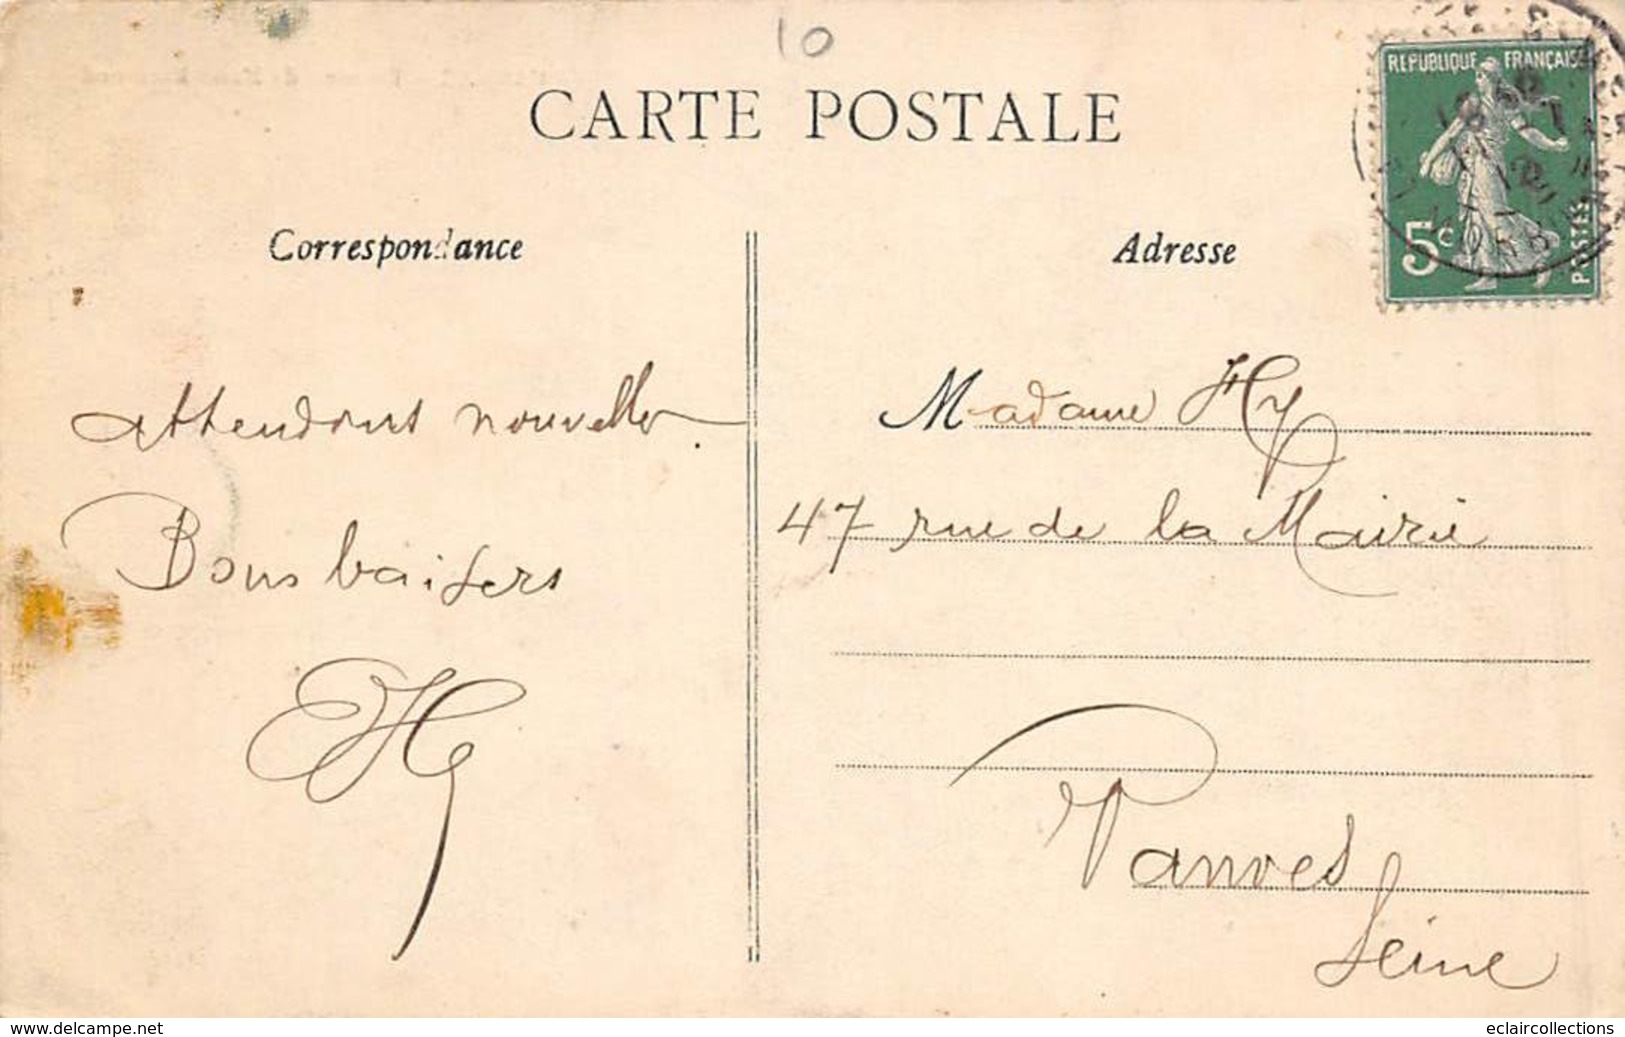 10
CARTE POSTALE
RÉPUBLIQUE FRANÇAISE
5c
POSTES
Correspondance
Adresse
attendons nouvelles.
Bons baisers
Madame Hy
47 rue de la Mairie
Vanves
Seine
www.delcampe.net
eclaircollections